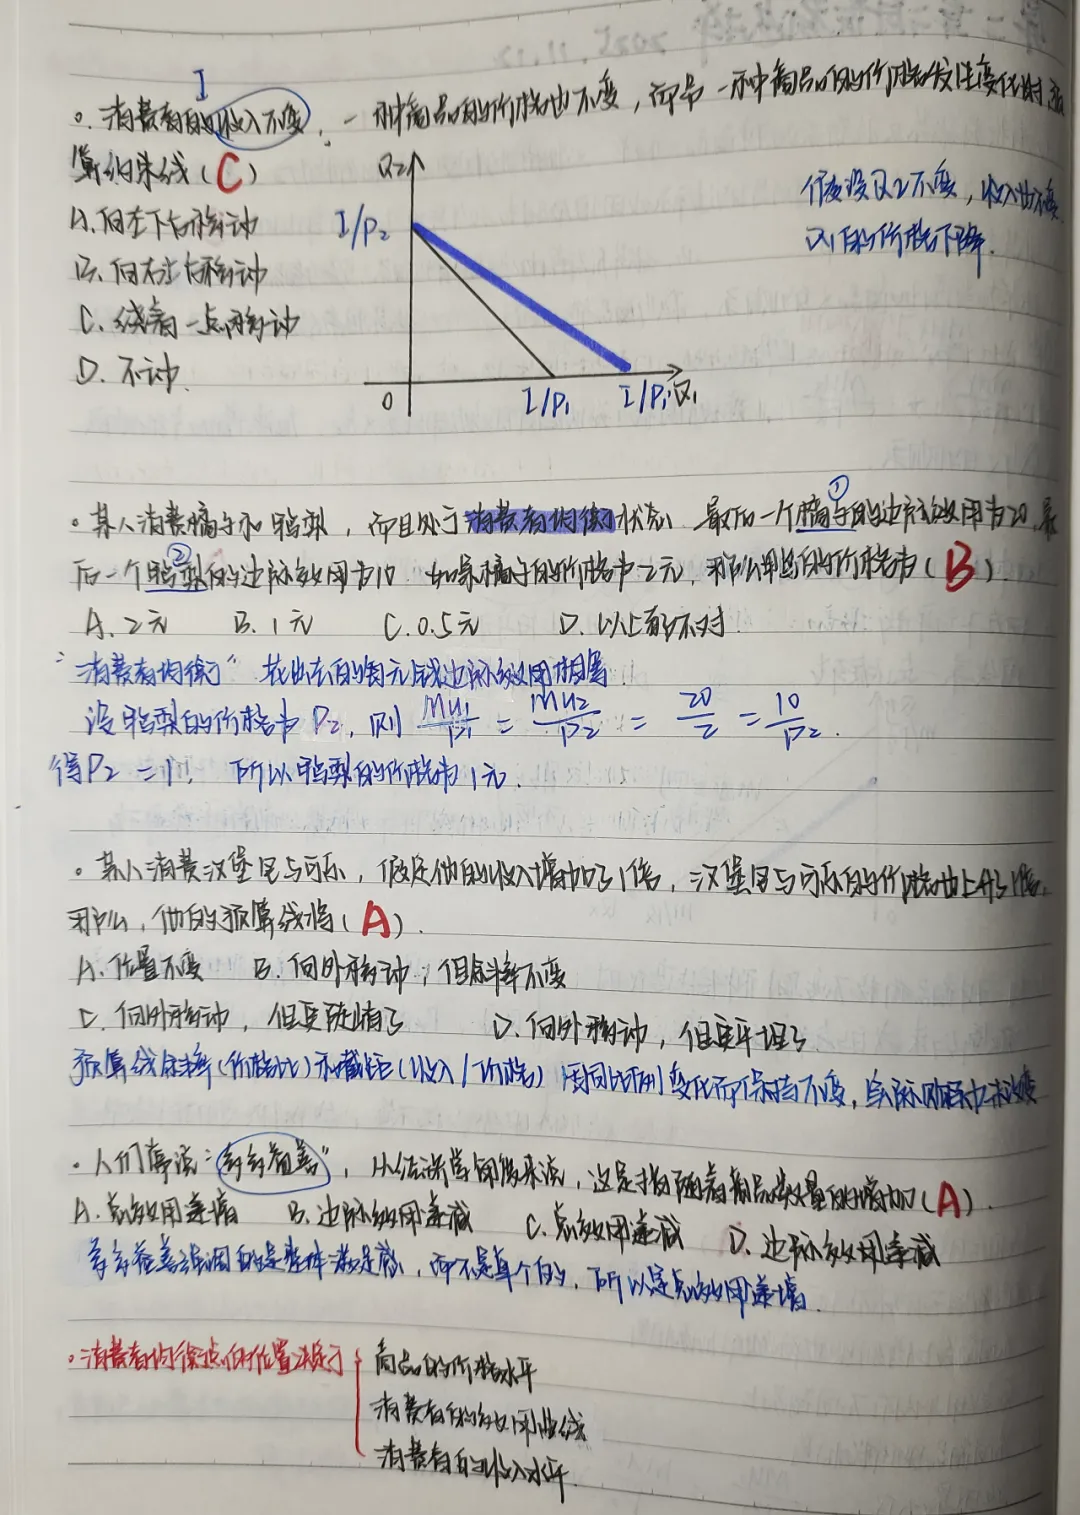 I
。消费者的收入不变,一种商品的价格也不变,而另一种商品的价格发生变化时,预
算约束线(C)
A.向左下方移动
B.向右上方移动
C.绕着一点移动
D.不动.
Q2
I/P2
0
I/P1
I/P1'
Q1
假设Q2不变,收入也不变
Q1的价格下降.
。某人消费橘子和鸭梨,而且处于消费者均衡状态 最后一个①橘子的边际效用为20,最
后一个②鸭梨的边际效用为10 如果橘子的价格为2元,那么鸭梨的价格为(B).
A.2元 B.1元 C.0.5元 D.以上都不对.
"消费者均衡" 花出去的每元钱边际效用相等.
设鸭梨的价格为P2,则 MU1/P1 = MU2/P2 = 20/2 = 10/P2.
得P2=1, 所以鸭梨的价格为1元.
。某人消费汉堡包与可乐,假定他的收入增加了1倍,汉堡包与可乐的价格也上升了1倍,
那么,他的预算线将(A).
A.位置不变 B.向外移动,但斜率不变
C.向外移动,但更陡峭了 D.向外移动,但更平坦了.
预算线斜率(价格比)和截距(收入/价格) 因同比例变化而保持不变,实际购买力未改变
。人们常说:"多多益善",从经济学角度来说,这是指随着商品数量的增加(A).
A.总效用递增 B.边际效用递减 C.总效用递减 D.边际效用递减
多多益善强调的是整体满足感,而不是单个的,所以是总效用递增.
。消费者均衡点的位置决定于
商品的价格水平
消费者的效用曲线
消费者的收入水平.